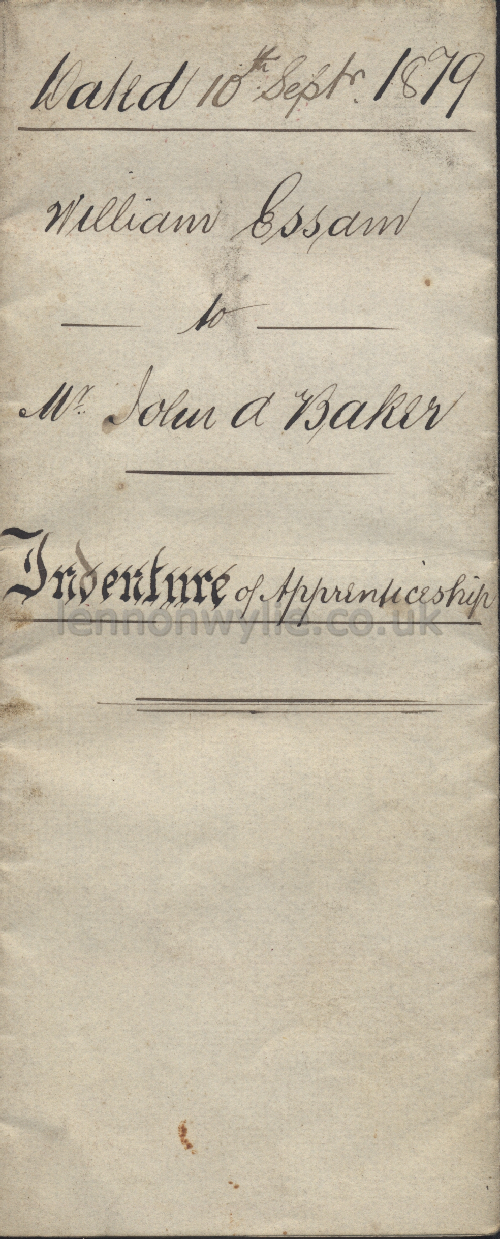 Dated 10th Septr. 1879
William Essam
to
Mr. John A Baker
Indenture of Apprenticeship
lennonwylie.co.uk